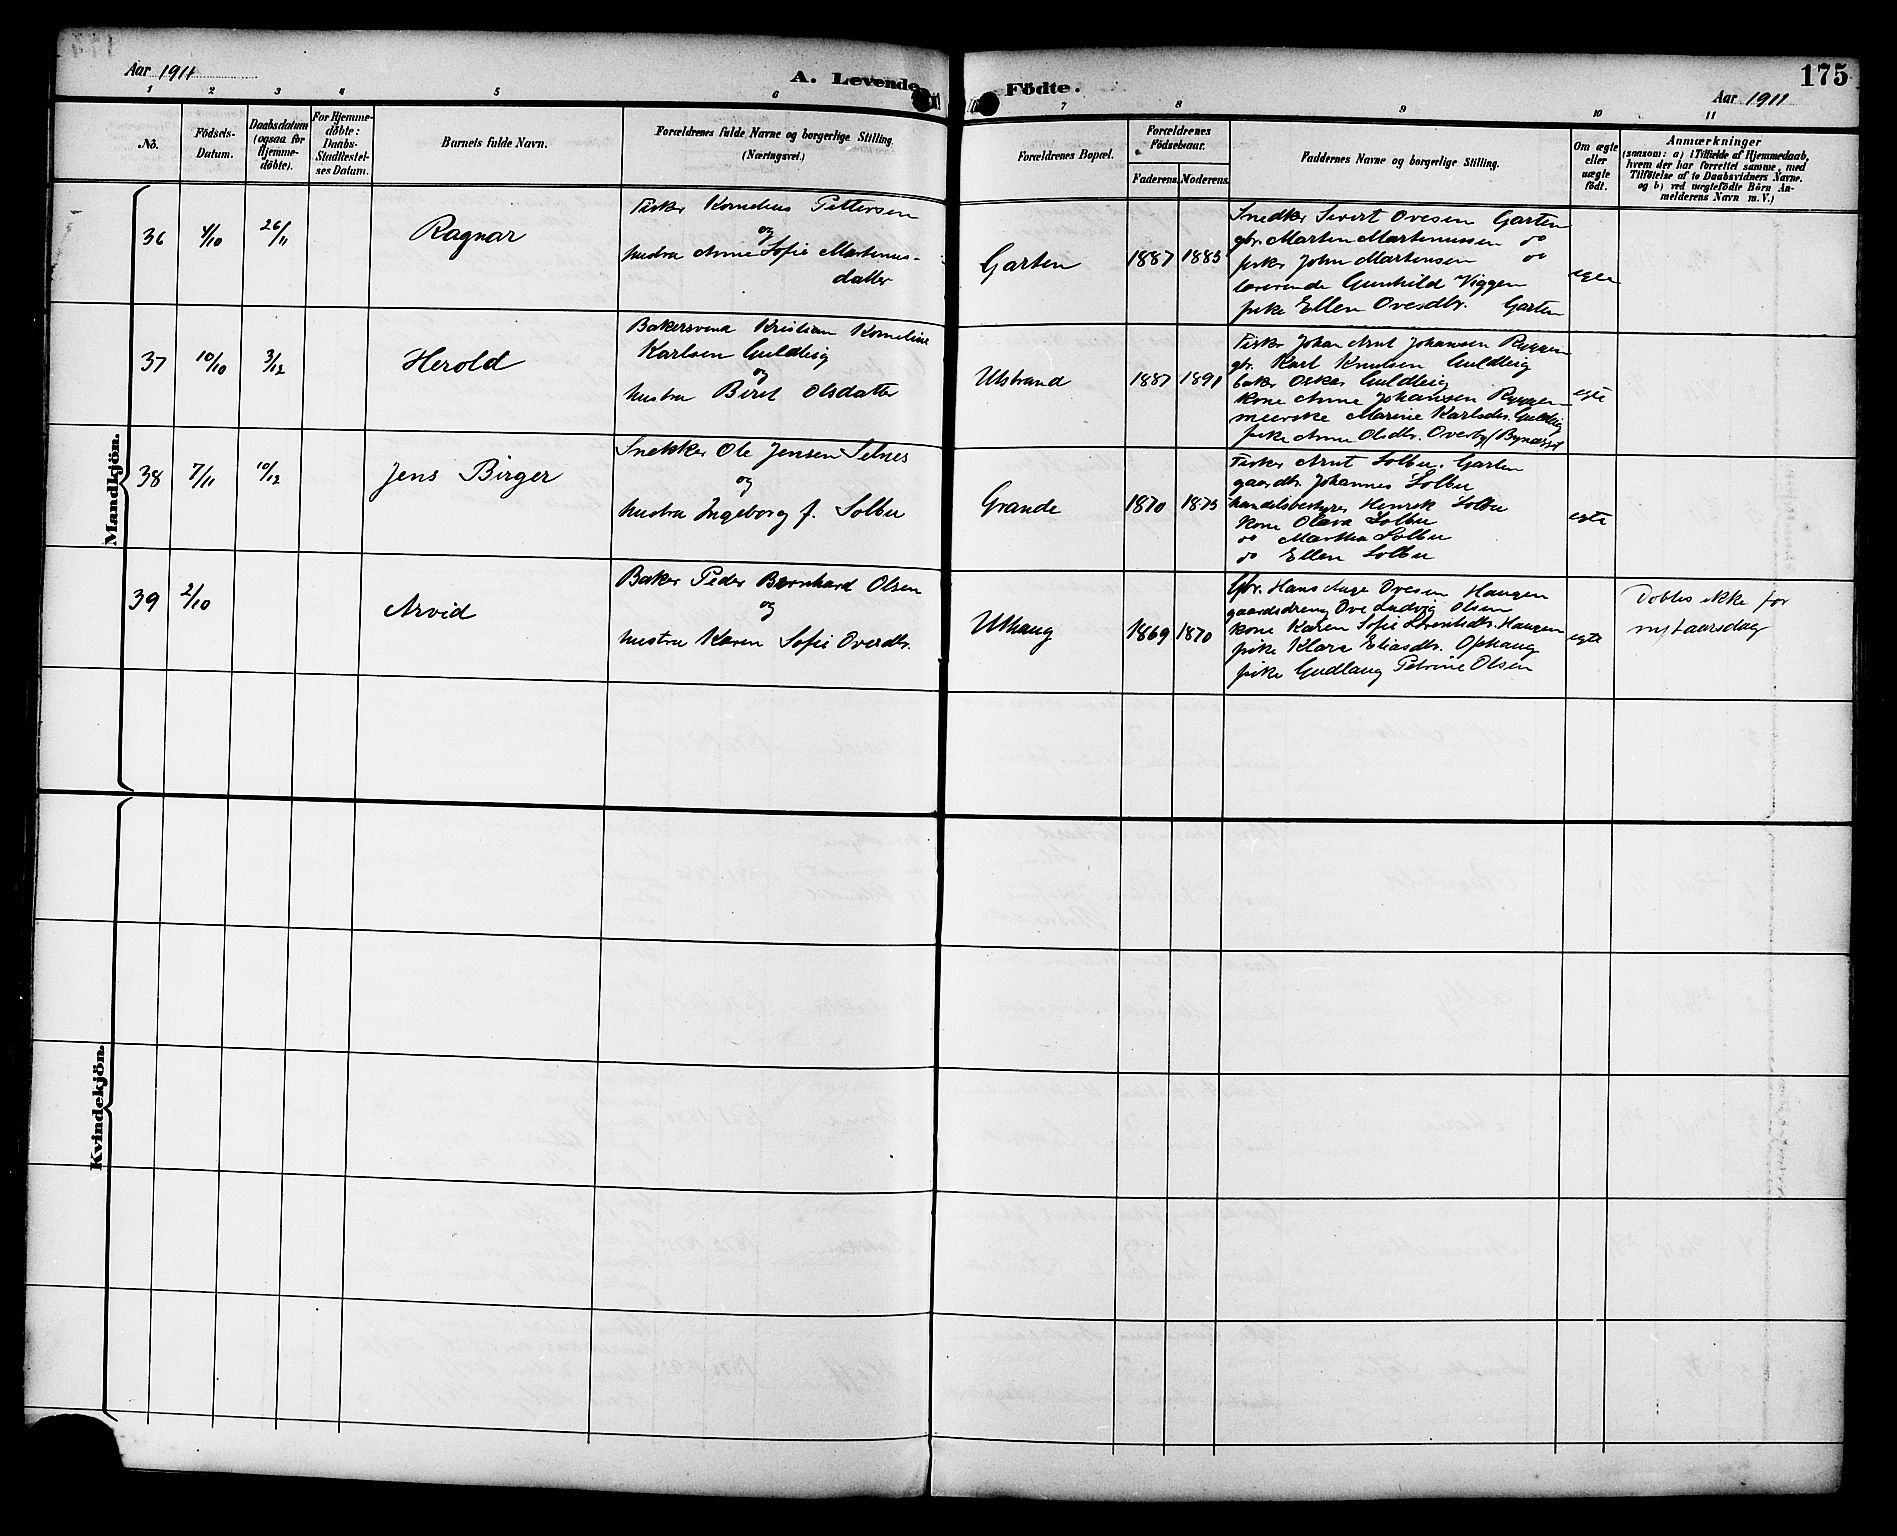 175
Aar 1911
A. Levende Födte.
Aar 1911
1 2 3 4 5 6 7 8 9 10 11
No.
Födsels-
Datum.
Daabsdatum
(ogsaa for
Hjemme-
döbte).
For Hjemme-
döbte:
Daabs-
Stadfæstel-
ses Datum.
Barnets fulde Navn.
Forældrenes fulde Navne og borgerlige Stilling
(Næringsvei.)
Forældrenes Bopæl.
Forældrenes
Födselsaar.
Faderens. Moderens.
Faddernes Navne og borgerlige Stilling.
Om ægte
eller
uægte
født.
Anmærkninger
(saasom: a) i Tilfælde af Hjemmedaab,
hvem der har forrettet samme, med
Tilföielse af to Daabsvidners Navne.
og b) ved uægtefödte Börn An-
melderens Navn m. V.)
Mandkjön.
36 4/10 26/11 Ragnar
Fisker Kornelius Pettersen
og
hustru Anne Sofie Martinus-
datter
Garten 1887 1885
Snedker Sivert Ovesen Garten
gbr. Marten Martinussen do
fisker John Martensen do
lærerinde Gunhild Viggen
pike Ellen Ovesdtr. Garten
egte
37 10/10 3/12 Herold
Bakersvend Kristian Kornelius
Karlsen Guldteig
og
hustru Beret Olsdatter
Ulstrand 1887 1891
Fisker Johan Arnt Johansen Ryggen
gbr. Karl Knutsen Guldteig
baker Oskar Guldteig
Kone Anne Johansen Ryggen
meierske Marine Karlsdtr. Guldteig
pike Anne Olsdtr. Overby (Bynesset
egte
38 7/11 10/12 Jens Birger
Snekker Ole Jensen Selnes
og
hustru Ingeborg f. Solbu
Grande 1870 1875
Fisker Arnt Solbu, Garten
gaardbr. Johannes Solbu
handelsbestyrer Henrik Solbu
Kone Olava Solbu
do Martha Solbu
do Ellen Solbu
egte
39 2/10 Arvid
Baker Peder Bernhard Olsen
og
hustru Karen Sofie Ovesdtr.
Uthaug 1869 1870
Gbr. Hans Aage Ovesen Haugen
gaardsdreng Ove Ludvig Olsen
Kone Karen Sofie Lorentsdtr. Haugen
pike Klara Eliasdtr. Ophaug
pike Gudlaug Petrine Olsen
egte
Döbtes ikke før
nyttaarsdag
Kvindekjön.